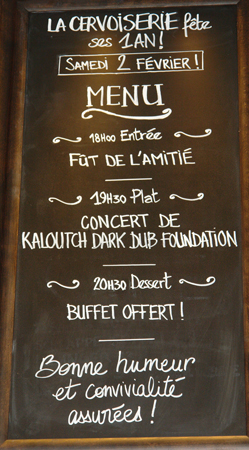 LA CERVOISERIE fête
ses 1 AN!
SAMEDI 2 FÉVRIER!
MENU
18H00 Entrée
FÛT DE L'AMITIÉ
19H30 Plat
CONCERT DE
KALOUTCH DARK DUB FOUNDATION
20H30 Dessert
BUFFET OFFERT!
Bonne humeur
et convivialité
assurées!